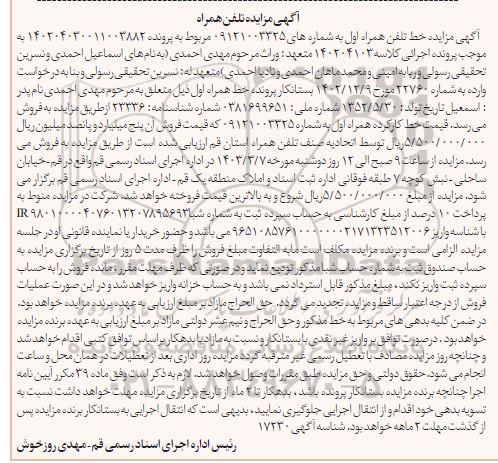 آگهی مزایده تلفن همراه
آگهی مزایده خط تلفن همراه اول به شماره های ۰۹۱۲۱۰۰۳۳۲۵ مربوط به پرونده ۱۴۰۲۰۴۰۳۰۰۱۱۰۰۳۸۸۲ به
موجب پرونده اجرائی کلاسه ۱۴۰۲۰۴۱۰۳ متعهد : وراث مرحوم مهدی احمدی (به نام های اسماعیل احمدی و نسرین
تحقیقی رسولی و ریا به امینی و محمد ماهان احمدی و نادیا احمدی ) متعهد له : نسرین تحقیقی رسولی و بنا به درخواست
وارده به شماره ۲۲۷۶۰ مورخ ۱۴۰۲/۱۲/۹ بستانکار پرونده خط همراه اول ذیل متعلق به مرحوم مهدی احمدی نام پدر
: اسمعیل تاریخ تولد : ۱۳۵۲/۵/۳۰ شماره ملی : ۰۳۸۱۶۹۹۶۵۱ شماره شناسنامه : ۲۳۳۳۶ از طریق مزایده به فروش
می رسد . قیمت خط کارکرده همراه اول به شماره ۰۹۱۲۱۰۰۳۳۲۵ که قیمت فروش آن پنج میلیارد و پانصد میلیون ریال
۵/۵۰۰/۰۰۰/۰۰۰ ریال توسط اتحادیه صنف تلفن همراه استان قم ارزیابی شده است از طریق مزایده به فروش می
رسد. مزایده از ساعت ۹ صبح الی ۱۲ روز دوشنبه مورخه ۱۴۰۳/۳/۷ در اداره اجرای اسناد رسمی قم واقع در قم - خیابان
ساحلی - نبش کوچه ۷ طبقه فوقانی اداره ثبت اسناد و املاک منطقه یک قم - اداره اجرای اسناد رسمی قم برگزار می
شود. مزایده از مبلغ ۵/۵۰۰/۰۰۰/۰۰۰ ریال شروع و به بالاترین قیمت فروخته خواهد شد، شرکت در مزایده منوط به
پرداخت ۱۰ درصد از مبلغ کارشناسی به حساب سپرده ثبت به شماره شبا IR ۹۸۰۱۰۰۰۰۴۰۷۶۰۱۳۲۰۷۸۹۵۶۹۳
با شناسه واریز ۹۶۵۱۰۸۵۷۶۱۰۰۰۰۰۰۲۱۷۱۳۲۳۵۱۲۰۰۶ می باشد و حضور خریدار یا نماینده قانونی او در جلسه
مزایده الزامی است و برنده مزایده مکلف است مابه التفاوت مبلغ فروش را ظرف مدت ۵ روز از تاریخ برگزاری مزایده به
حساب صندوق ثبت به شماره حساب شبا مذکور تودیع نماید و در صورتی که ظرف مهلت مقرر ، مانده فروش را به حساب
سپرده ثبت واریز نکند ، مبلغ مذکور قابل استرداد نمی باشد و به حساب خزانه واریز خواهد شد و در این صورت عملیات
فروش از درجه اعتبار ساقط و مزایده تجدید می گردد . حق الحراج مازاد بر مبلغ ارزیابی به عهده برنده مزایده خواهد بود.
در ضمن کلیه بدهی های مربوط به خط مذکور و حق الحراج و نیم عشر دولتی مازاد بر مبلغ ارزیابی به عهده برنده مزایده
خواهد بود . در صورت توافق بر واریز غیر نقدی با بستانکار و نسبت به مازاد با بدهکار بر اساس توافق کتبی اقدام خواهد شد
و چنانچه روز مزایده مصادف با تعطیل رسمی غیر مترقبه گردد مزایده روز اداری بعد از تعطیلات در همان محل و ساعت
انجام می شود. حقوق دولتی و حق مزایده طبق مقررات وصول خواهد شد. لازم به ذکر است وفق ماده ۳۹ مکرر آیین نامه
اجرا چنانچه برنده مزایده بستانکار پرونده باشد ، بدهکار تا ۲ ماه از تاریخ برگزاری مزایده مهلت خواهد داشت نسبت به
تسویه بدهی خود اقدام و از انتقال اجرایی جلوگیری نمایید ، بدیهی است که انتقال اجرایی به بستانکار برنده مزایده پس
از گذشت مهلت ۲ ماهه خواهد بود. شناسه آگهی ۱۷۲۳۰
رئیس اداره اجرای اسناد رسمی قم - مهدی روزخوش